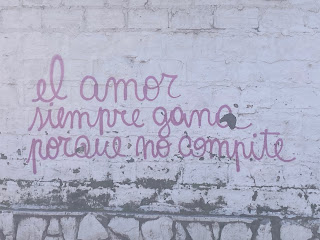 el amor
siempre gana
porque no compite